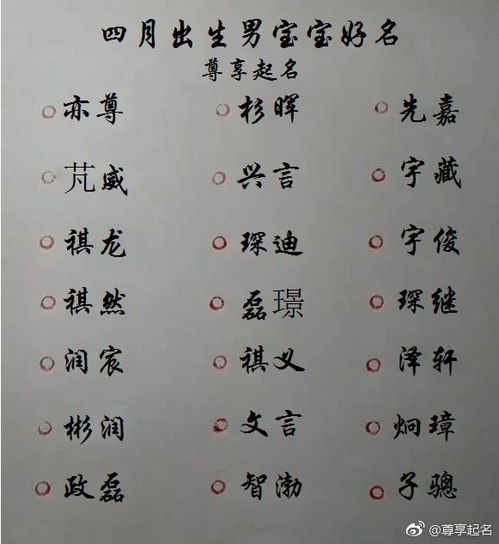 四月出生男宝宝好名
尊享起名
亦尊 杉晖 先嘉
芃威 兴言 宇藏
祺龙 琛迪 宇俊
祺然 磊璟 琛继
润宸 祺义 泽轩
彬润 文言 炯璋
政磊 智渤 子骢
@尊享起名